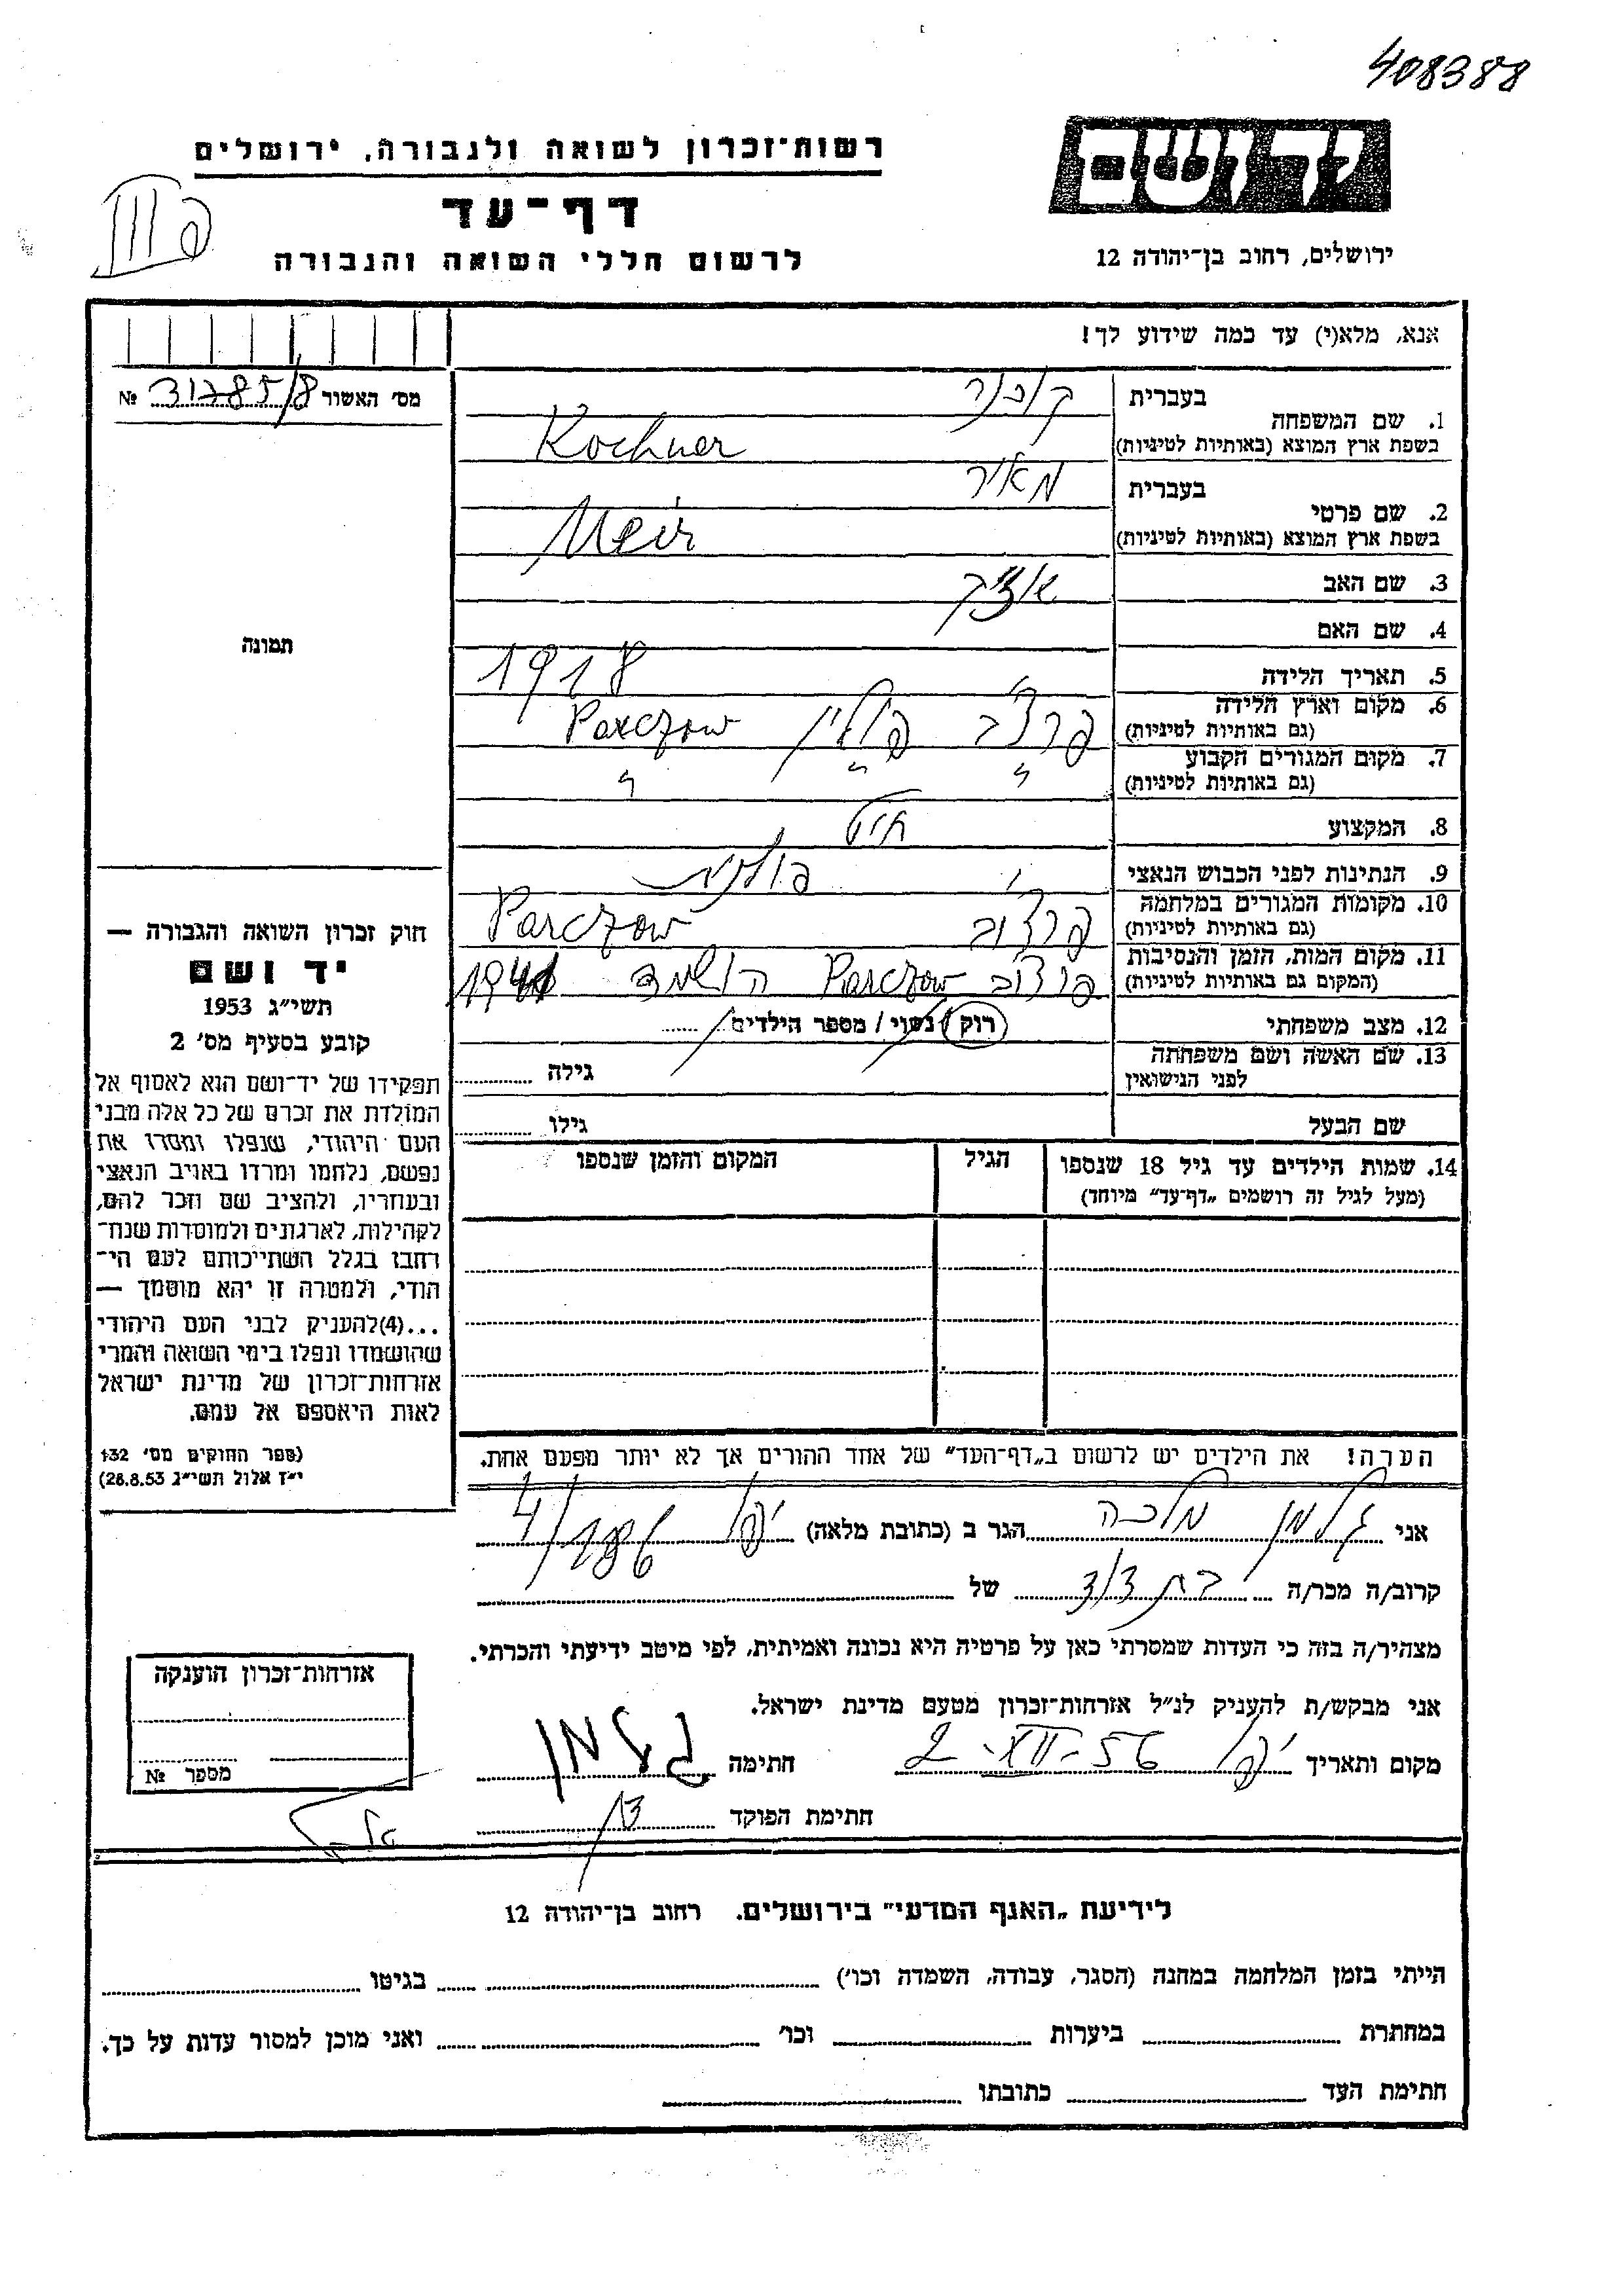 408388
רשות־זכרון לשואה ולגבורה, ירושלים
יד ושם
דף־עד
לרשום חללי השואה והגבורה
ירושלים, רחוב בן־יהודה 12
אנא, מלא(י) עד כמה שידוע לך!
מס' האשור 31785/8 №
1. שם המשפחה
בעברית קוכנר
בשפת ארץ המוצא (באותיות לטיניות) Kochner
2. שם פרטי
בעברית מאיר
בשפת ארץ המוצא (באותיות לטיניות) Meir
3. שם האב איציק
4. שם האם
5. תאריך הלידה 1918
6. מקום וארץ הלידה פרצ'ב פולין Parczow
(גם באותיות לטיניות)
7. מקום המגורים הקבוע " " "
(גם באותיות לטיניות)
8. המקצוע חייט
9. הנתינות לפני הכבוש הנאצי פולנית
10. מקומות המגורים במלחמה פרצ'וב Parczow
(גם באותיות לטיניות)
11. מקום המות, הזמן והנסיבות פרצוב Parczow הושמד 1941
(המקום גם באותיות לטיניות)
12. מצב משפחתי רוק / נשוי / מספר הילדים
13. שם האשה ושם משפחתה גילה
לפני הנישואין
שם הבעל גילו
14. שמות הילדים עד גיל 18 שנספו הגיל המקום והזמן שנספו
(מעל לגיל זה רושמים „דף־עד” מיוחד)
תמונה
חוק זכרון השואה והגבורה —
יד ושם
תשי״ג 1953
קובע בסעיף מס' 2
תפקידו של יד־ושם הוא לאסוף אל
המולדת את זכרם של כל אלה מבני
העם היהודי, שנפלו ומסרו את
נפשם, נלחמו ומרדו באויב הנאצי
ובעוזריו, ולהציב שם וזכר להם,
לקהילות, לארגונים ולמוסדות שנח־
רבו בגלל השתייכותם לעם הי־
הודי, ולמטרה זו יהא מוסמך —
...(4) להעניק לבני העם היהודי
שהושמדו ונפלו בימי השואה והמרי
אזרחות־זכרון של מדינת ישראל
לאות היאספם אל עמם.
(ספר החוקים מס' 132
י״ז אלול תשי״ג 28.8.53)
הערה! את הילדים יש לרשום ב„דף־העד” של אחד ההורים אך לא יותר מפעם אחת.
אני גלמן מלכה הגר ב (כתובת מלאה) יפו 4/186
קרוב/ה מכר/ה בת דוד של
מצהיר/ה בזה כי העדות שמסרתי כאן על פרטיה היא נכונה ואמיתית, לפי מיטב ידיעתי והכרתי.
אני מבקש/ת להעניק לנ״ל אזרחות־זכרון מטעם מדינת ישראל.
מקום ותאריך יפו 2-XII-56 חתימה גלמן
חתימת הפוקד
אזרחות־זכרון הוענקה
מספר №
לידיעת „האגף המדעי” בירושלים. רחוב בן־יהודה 12
הייתי בזמן המלחמה במחנה (הסגר, עבודה, השמדה וכו') בגיטו
במחתרת ביערות וכו' ואני מוכן למסור עדות על כך.
חתימת העד כתובתו